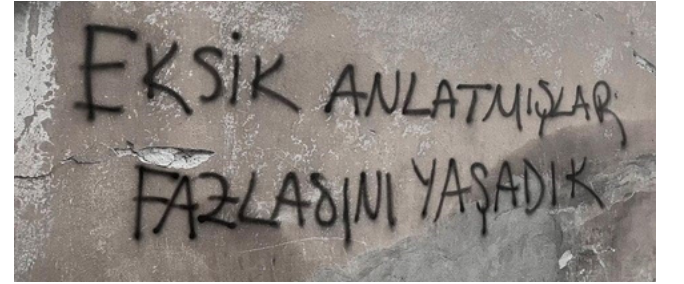 EKSİK ANLATMIŞLAR
FAZLASINI YAŞADIK